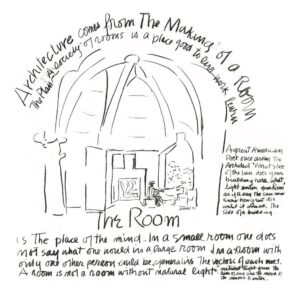 Architecture comes from The Making of a Room
The Plan A society of rooms is a place good to live work learn
A great American
Poet once asked The
Architect 'What slice
of the sun does your
building have. What
light enters your room
as if to say the sun never
knew how great it is
until it struck the
side of a building
The Room
is The place of the mind. In a small room one does
not say what one would in a large room In a room with
only one other person could be generative The vectors of each meet.
A room is not a room without natural light
natural light gives the
time of day and the mood of
the seasons to enter